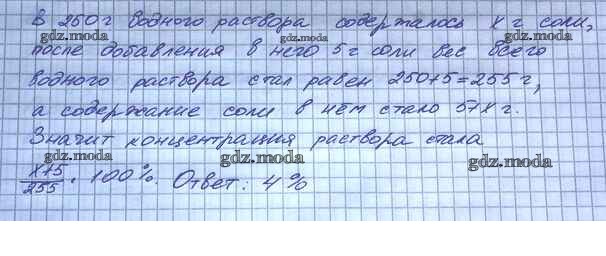 В 250 г водного раствора содержалось x г соли,
gdz.moda gdz.moda gdz.moda
после добавления в него 5 г соли вес всего
водного раствора стал равен 250+5=255 г,
gdz.moda gdz.moda gdz.moda
а содержание соли в нём стало 5+x г.
Значит концентрация раствора стала
gdz.moda gdz.moda gdz.moda
x+5/255 · 100%. Ответ: 4%